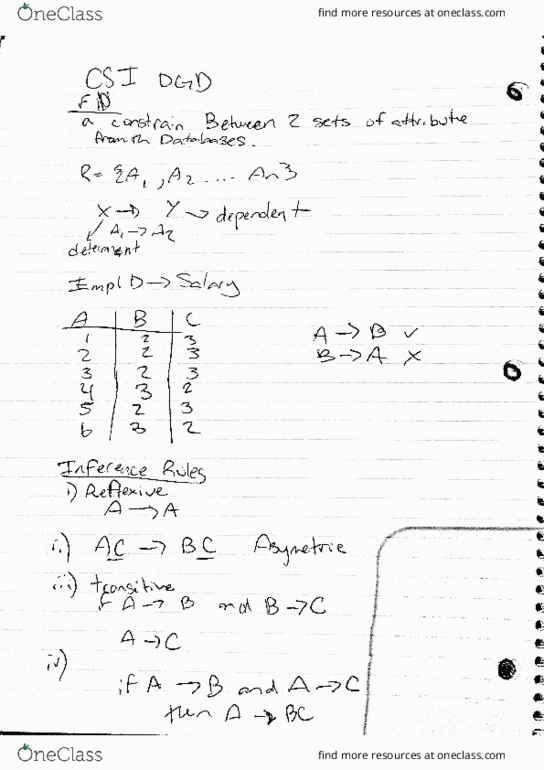 OneClass find more resources at oneclass.com
CSI DGD
FD
a constrain Between 2 sets of attribute
from th Databases.
R = {A1, A2 .... An}
X → Y → dependent
A1 → A2
determent
Empl D → Salary
A B C
1 2 3
2 2 3
3 2 3
4 3 2
5 2 3
6 3 2
A → B ✓
B → A X
Inference Rules
i) Reflexive
A → A
ii) AC → BC Asymetric
iii) transitive
if A → B and B → C
A → C
iv)
if A → B and A → C
then A → BC
OneClass find more resources at oneclass.com